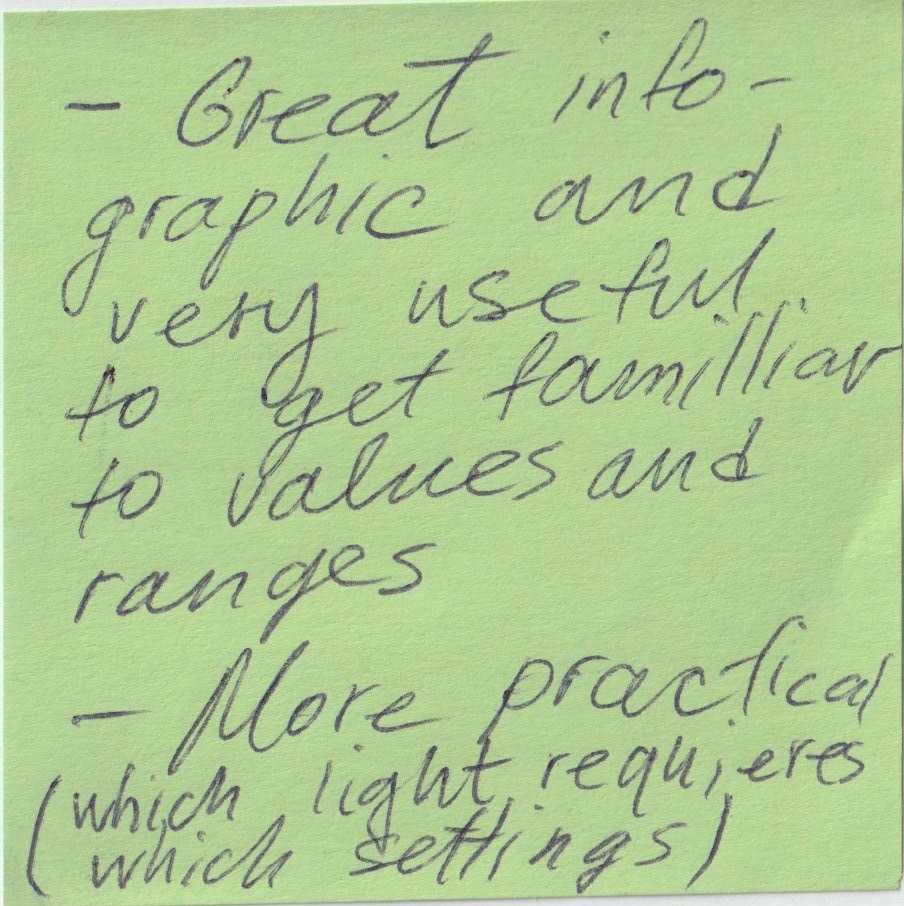 - Great info-
graphic and
very useful
to get familliar
to values and
ranges
- More practical
(which light requieres
which settings)